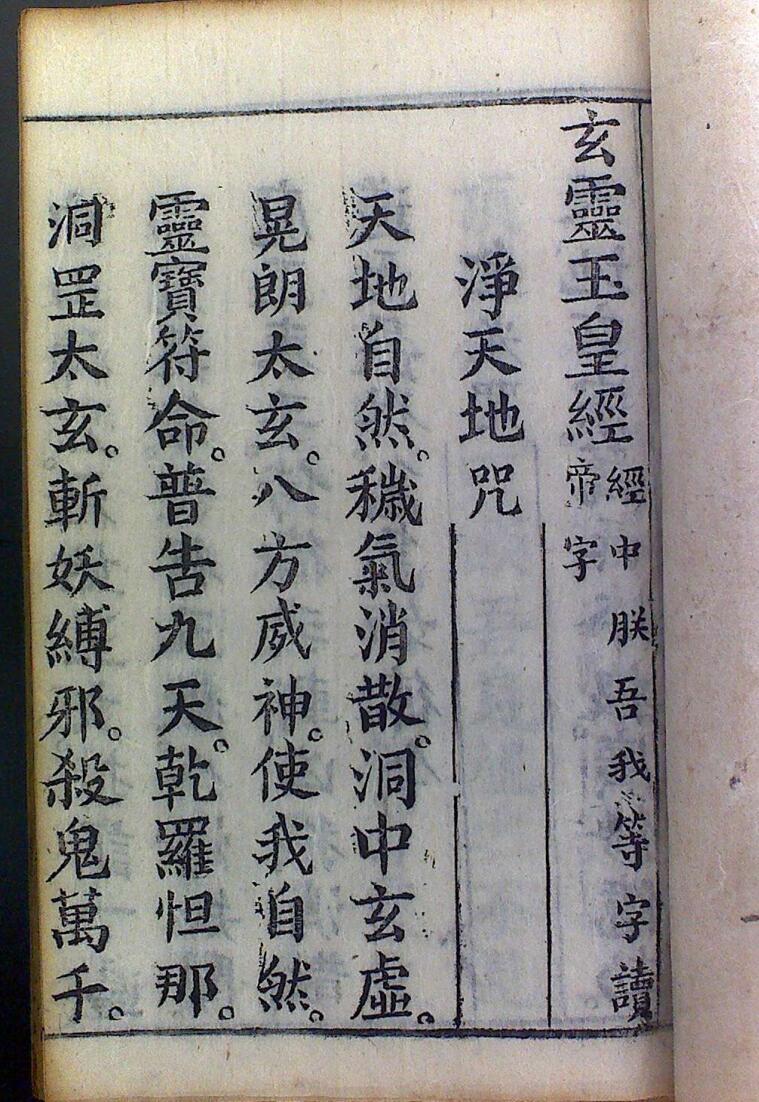 玄靈玉皇經 經中朕吾我等字讀帝字
淨天地咒
天地自然。穢氣消散。洞中玄虛。
晃朗太玄。八方威神。使我自然。
靈寶符命。普告九天。乾羅怛那。
洞罡太玄。斬妖縛邪。殺鬼萬千。